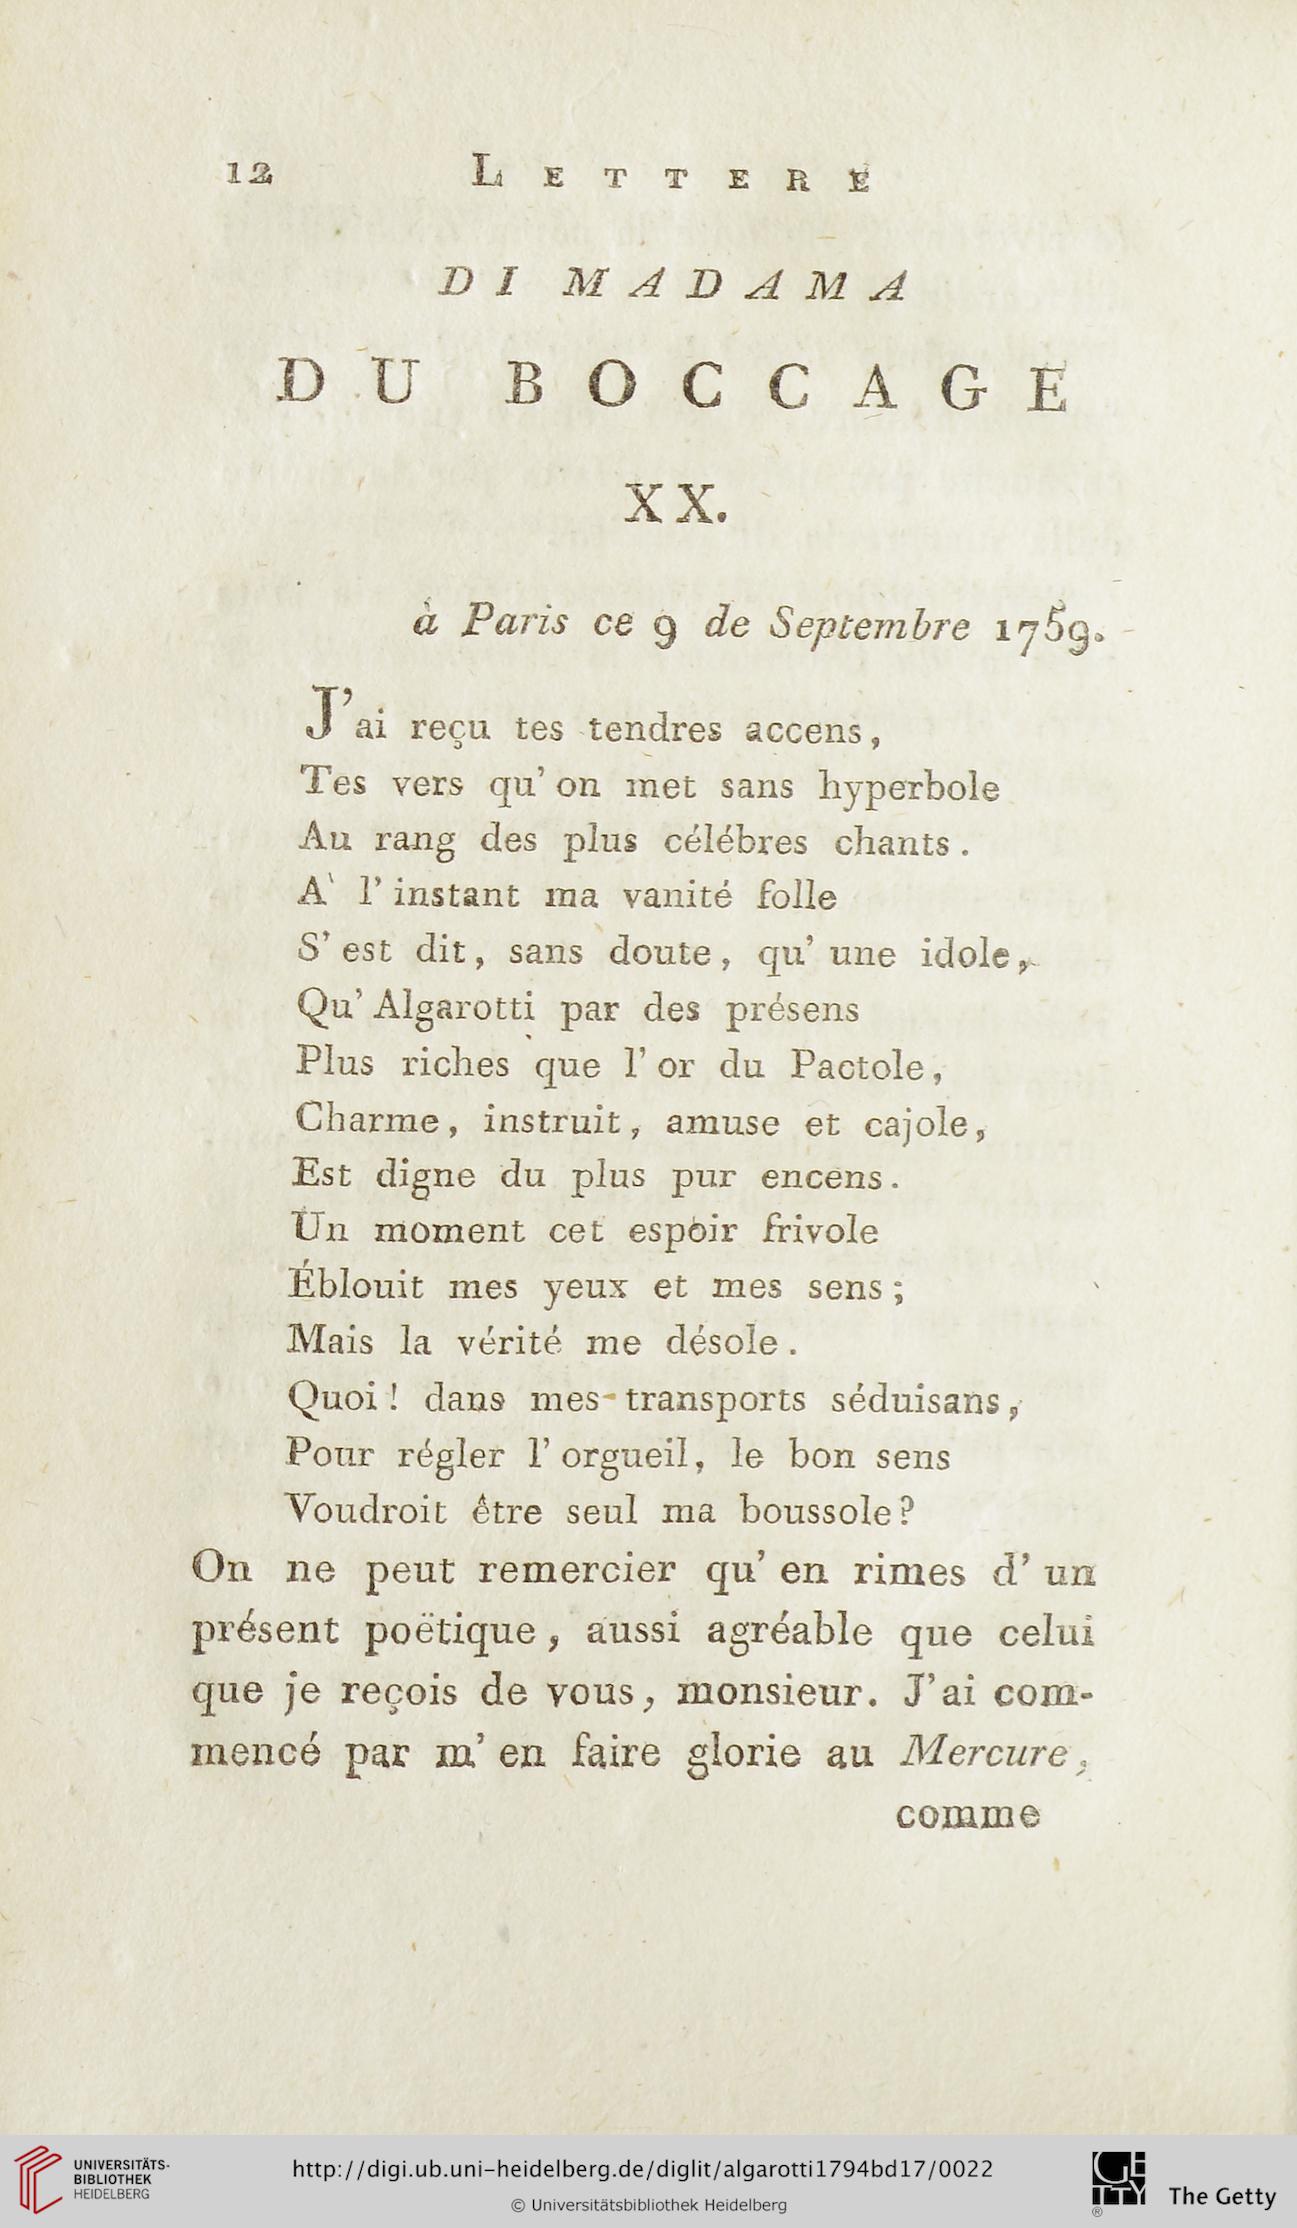 12 LETTERE
DI MADAMA
DU BOCCAGE
XX.
à Paris ce 9 de Septembre 1759.
J'ai reçu tes tendres accens,
Tes vers qu'on met sans hyperbole
Au rang des plus célébres chants.
A' l'instant ma vanité folle
S'est dit, sans doute, qu'une idole,
Qu'Algarotti par des présens
Plus riches que l'or du Pactole,
Charme, instruit, amuse et cajole,
Est digne du plus pur encens.
Un moment cet espoir frivole
Éblouit mes yeux et mes sens;
Mais la vérité me désole.
Quoi! dans mes transports séduisans,
Pour régler l'orgueil, le bon sens
Voudroit être seul ma boussole?
On ne peut remercier qu'en rimes d'un
présent poëtique, aussi agréable que celui
que je reçois de vous, monsieur. J'ai com-
mencé par m'en faire glorie au Mercure,
comme
UNIVERSITÄTS-
BIBLIOTHEK
HEIDELBERG
http://digi.ub.uni-heidelberg.de/diglit/algarotti1794bd17/0022
© Universitätsbibliothek Heidelberg
GETTY
®
The Getty